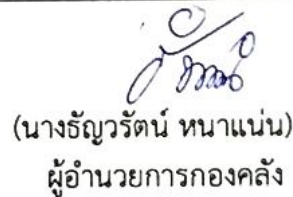 (นางธัญวรัตน์ หนาแน่น)
ผู้อำนวยการกองคลัง